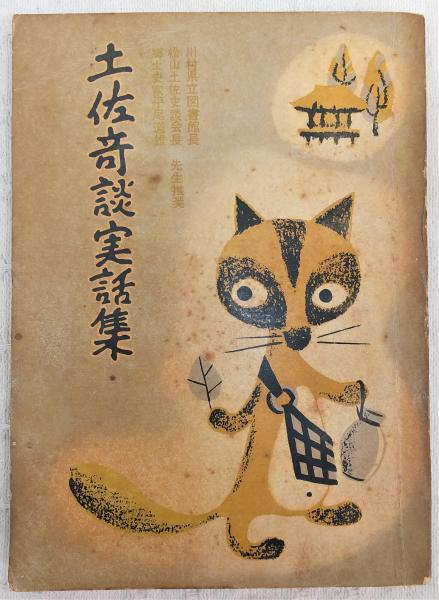 土佐奇談実話集
川村県立図書館長
松山土佐史談会長 先生推奨
郷土史家平尾道雄